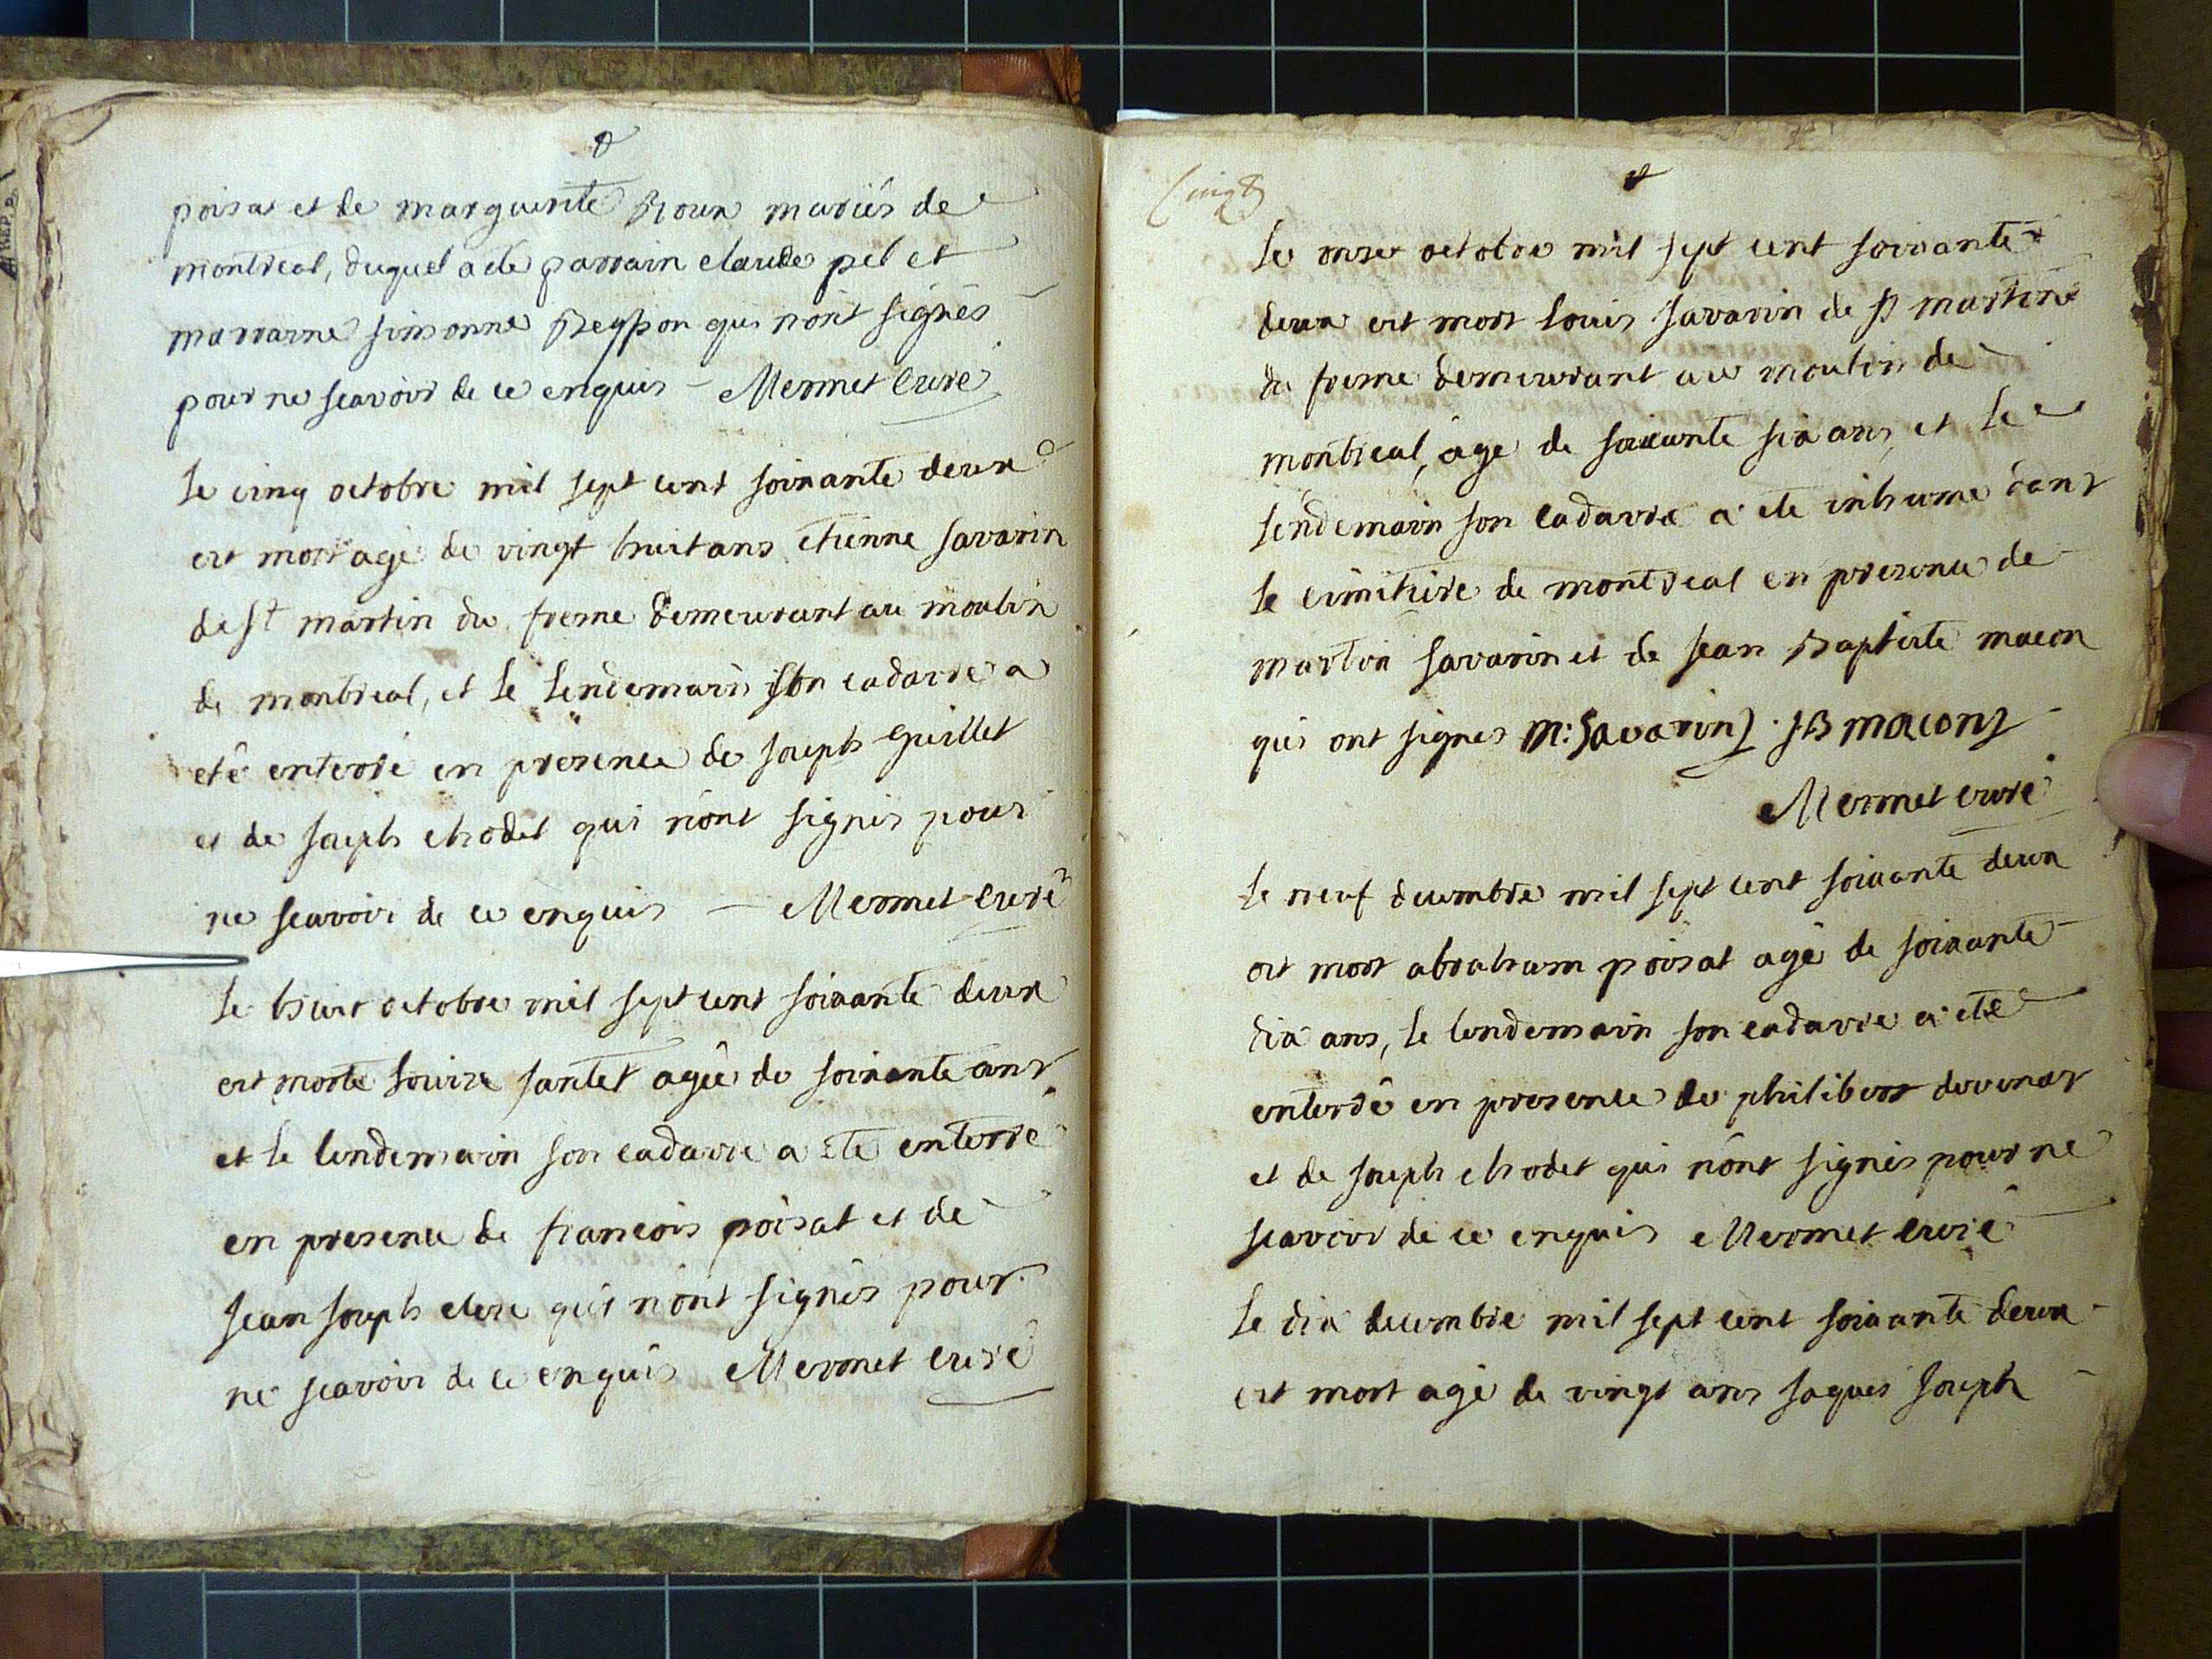 poisat et de marguerite Roux mariés de
montreal, duquel a été parrain claude pel et
marraine simonne Reyssou qui n'ont signés
pour ne scavoir de ce enquis - Mermet Curé
Le cinq octobre mil sept cent soixante deux
est mort agé de vingt huit ans etienne savarin
de st martin du fresne demeurant au moulin
de montreal, et le lendemain son cadavre a
eté enterré en presence de joseph Guillet
et de joseph chodet qui n'ont signés pour
ne scavoir de ce enquis - Mermet Curé
Le huit octobre mil sept cent soixante deux
est morte Louise santet agée de soixante ans
et le lendemain son cadavre a eté enterré
en presence de francois poisat et de
jean joseph clerc qui n'ont signés pour
ne scavoir de ce enquis Mermet Curé
Cinq
Le onze octobre mil sept cent soixante
deux est mort Louis savarin de st martin
du fresne demeurant au moulin de
montreal, agé de soixante six ans, et le
lendemain son cadavre a eté inhumé dans
le cimitiere de montreal en presence de
martin savarin et de jean Baptiste macon
qui ont signés M: Savarin. JB macon
Mermet curé
Le neuf decembre mil sept cent soixante deux
est mort abraham poisat agé de soixante
dix ans, le lendemain son cadavre a eté
enterré en presence de philibert
et de joseph chodet qui n'ont signés pour ne
scavoir de ce enquis Mermet curé
Le dix decembre mil sept cent soixante deux
est mort agé de vingt ans jaques joseph